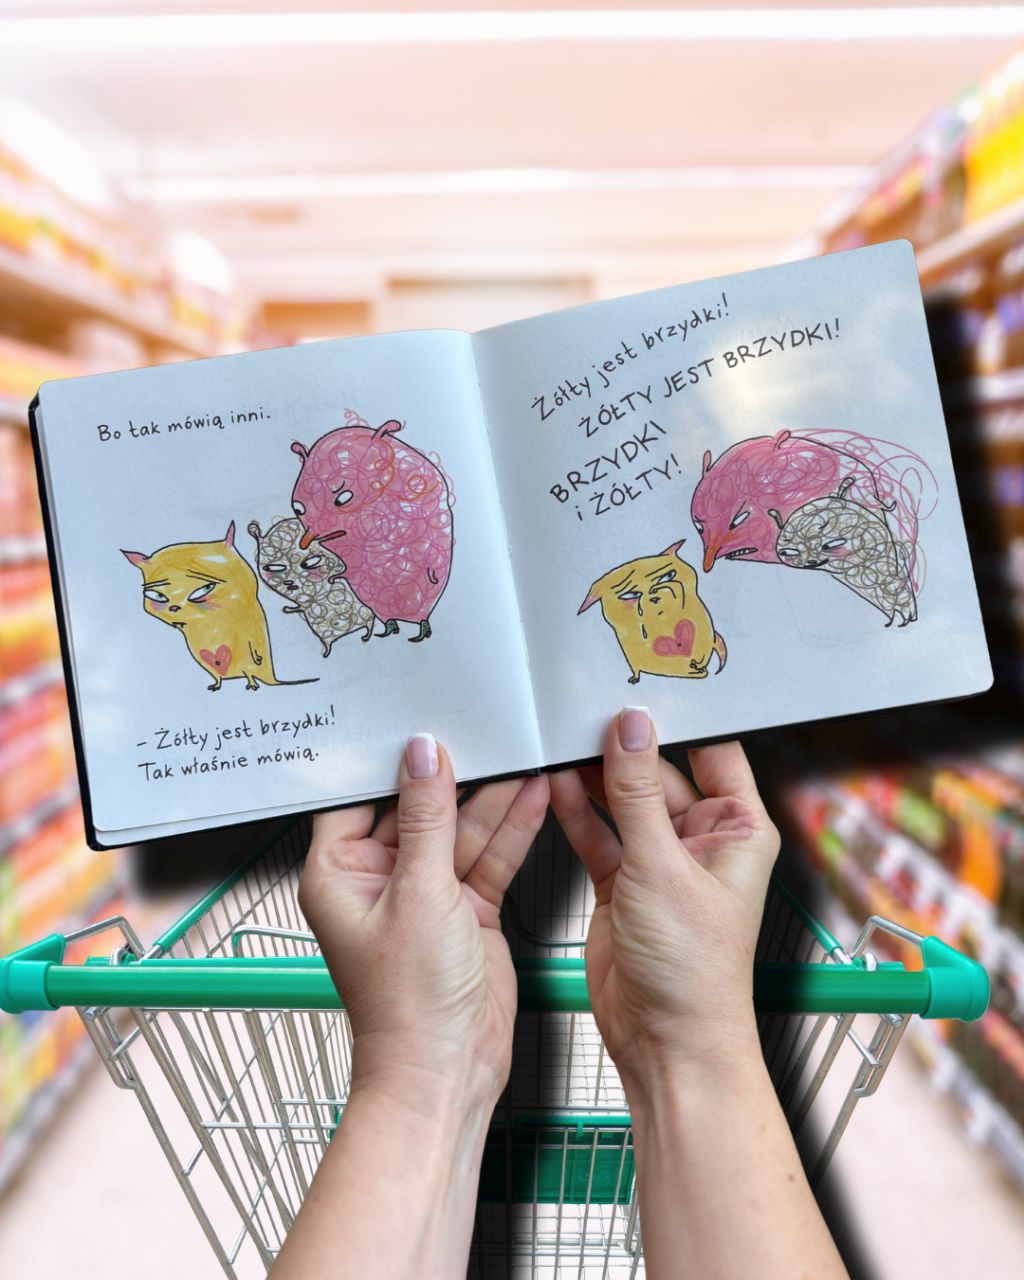 Bo tak mówią inni.
– Żółty jest brzydki!
Tak właśnie mówią.
Żółty jest brzydki!
ŻÓŁTY JEST BRZYDKI!
BRZYDKI
i ŻÓŁTY!